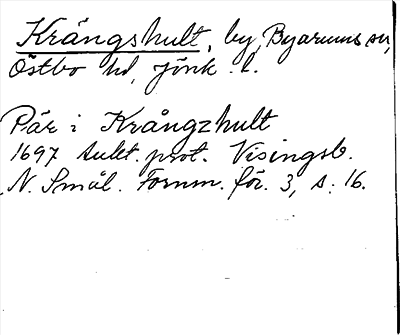 Krångshult, by, Byarums sn,
Östbo hd, Jönk. l.
Pär i Krångzhult
1697 Aukt. prot. Visingsb.
N. Smål. Fornm. för. 3, s. 16.